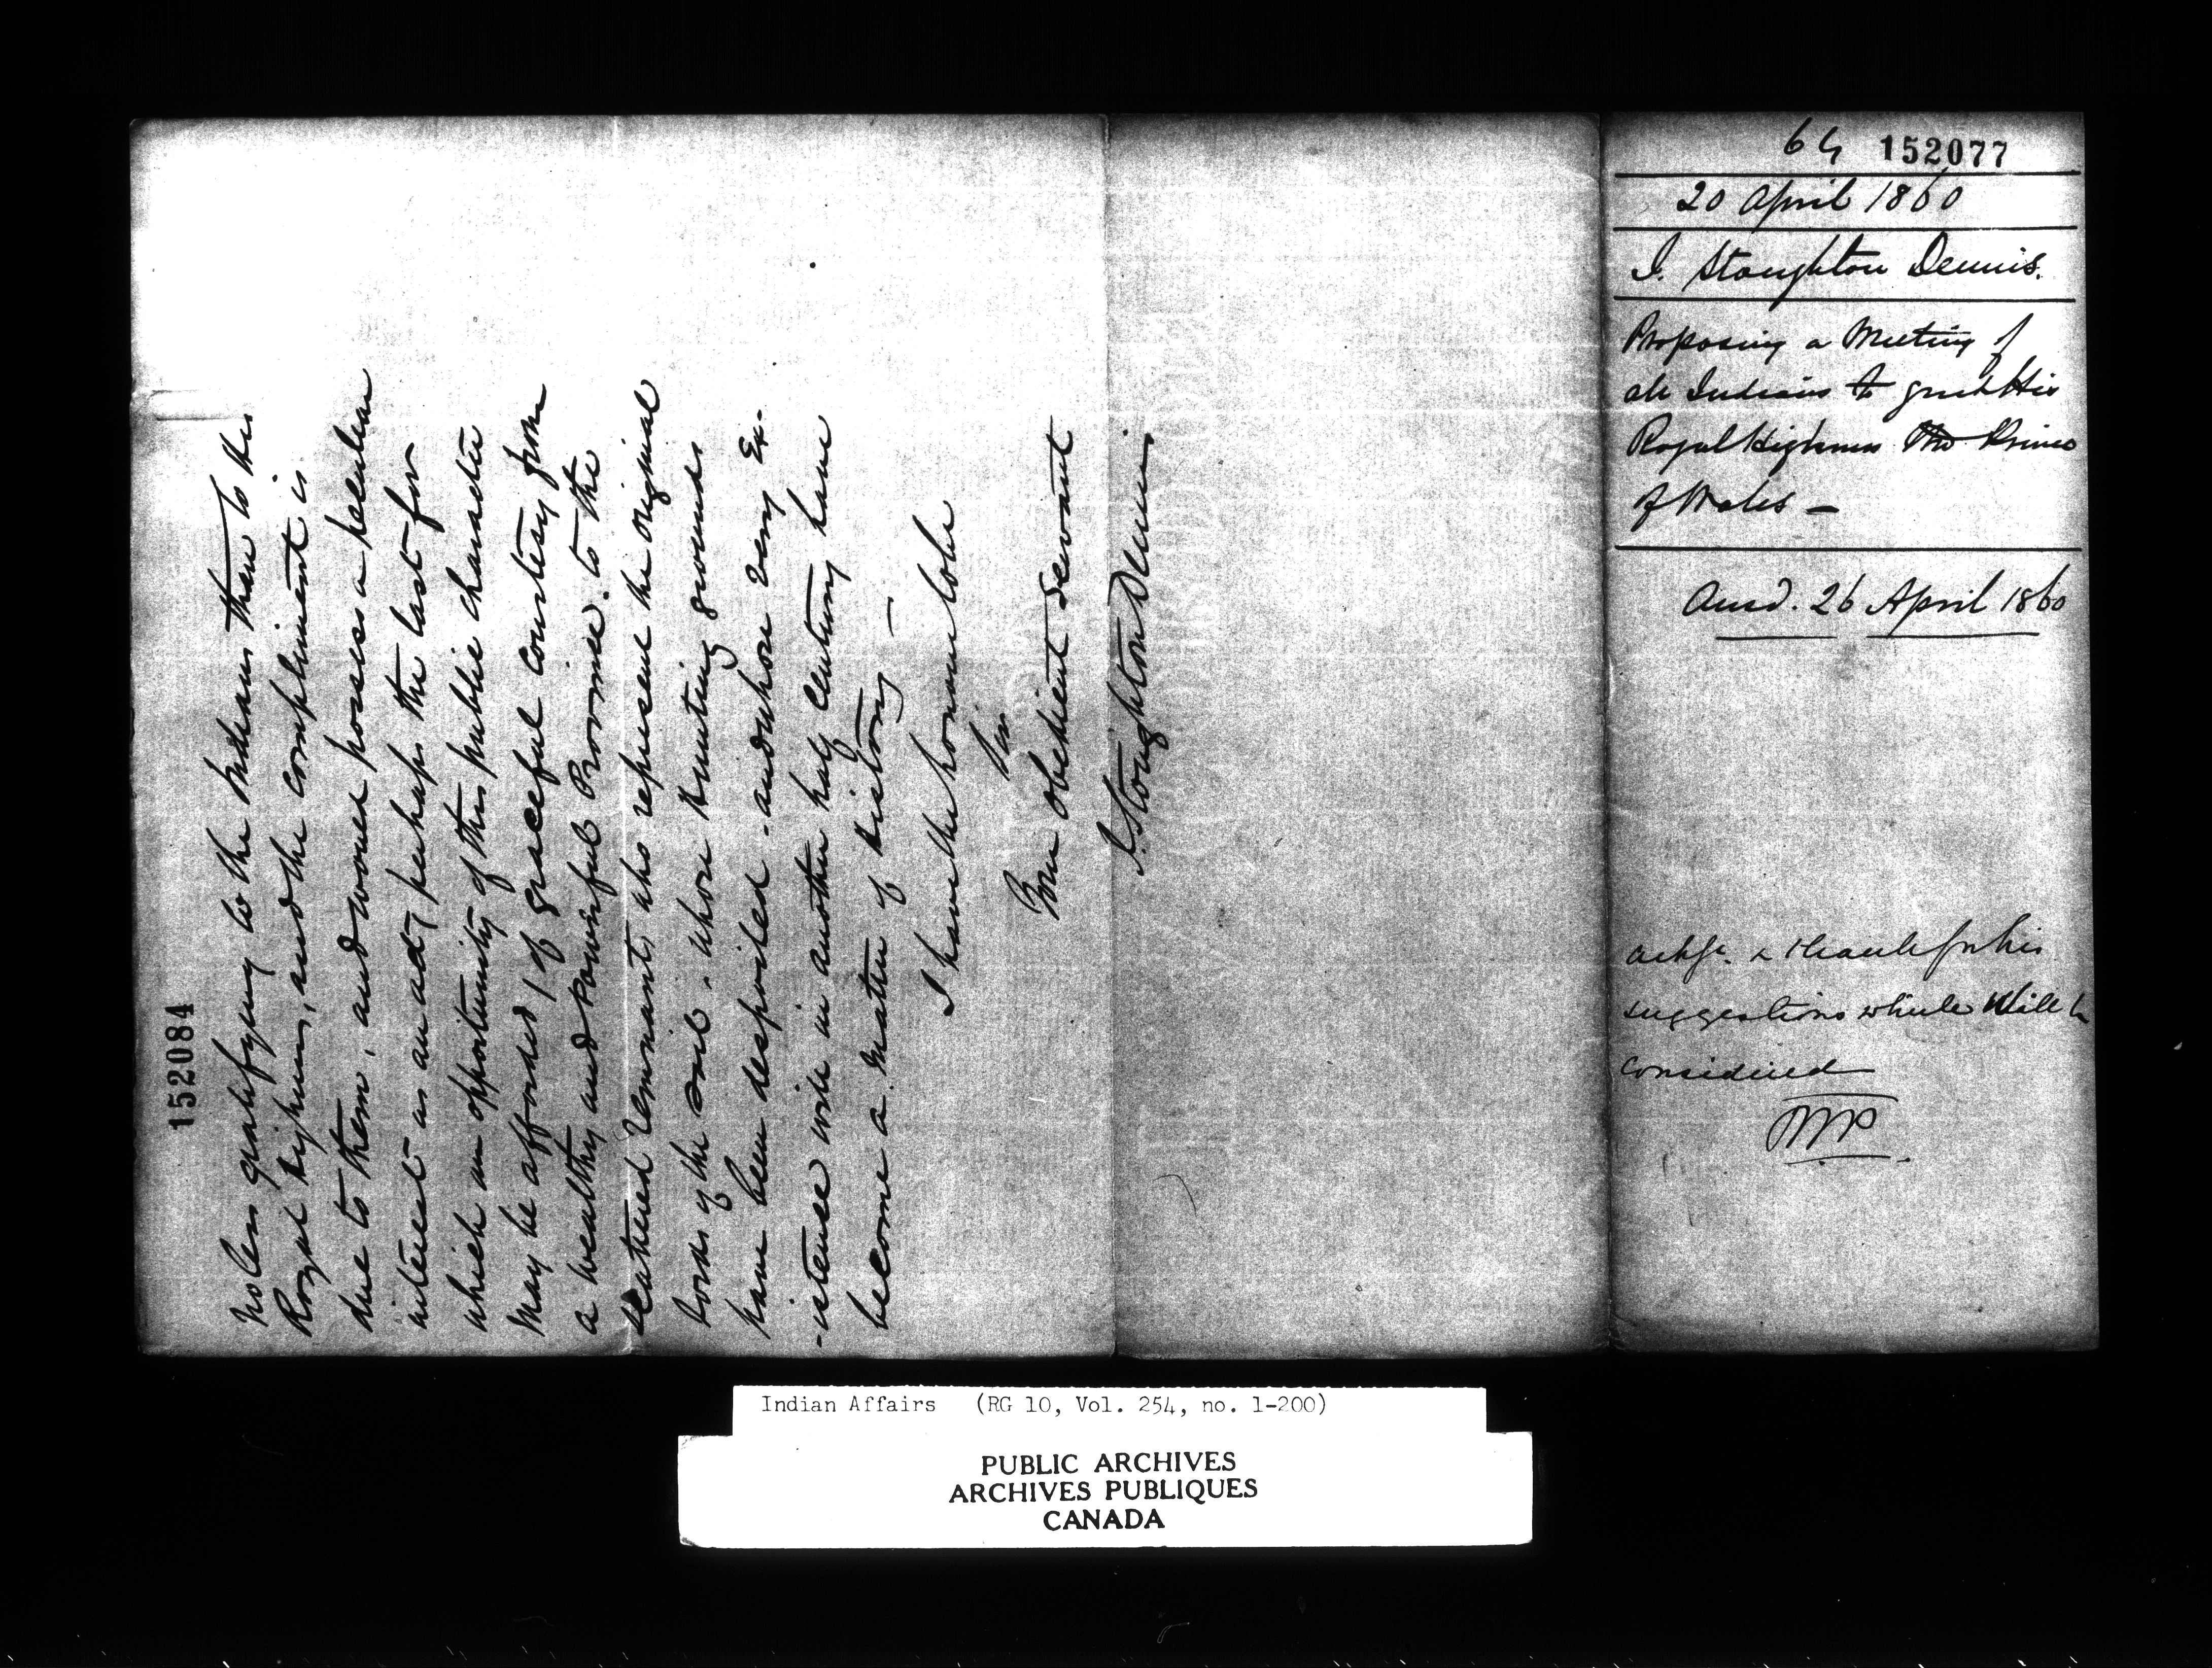 152084
no less gratifying to the Indians than to His
Royal Highness, and the compliment is
due to them, and would possess a peculiar
interest as an act, perhaps the last for
which an opportunity of this public character
may be afforded, of graceful courtesy from
a wealthy and powerful Province to the
scattered remnants who represent the original
lords of the soil. whose Hunting grounds
have been despoiled. and whose very Ex-
-istence will in another half century have
become a matter of history —
I have the honour to be
Sir
Your obedient Servant
J. Stoughton Dennis
64 152077
20 April 1860
J. Stoughton Dennis.
Proposing a Meeting of
all Indians to greet His
Royal Highness The Prince
of Wales —
Ansd. 26 April 1860
& thank for his
suggestions which will be
considered
Indian Affairs (RG 10, Vol. 254, no. 1-200)
PUBLIC ARCHIVES
ARCHIVES PUBLIQUES
CANADA